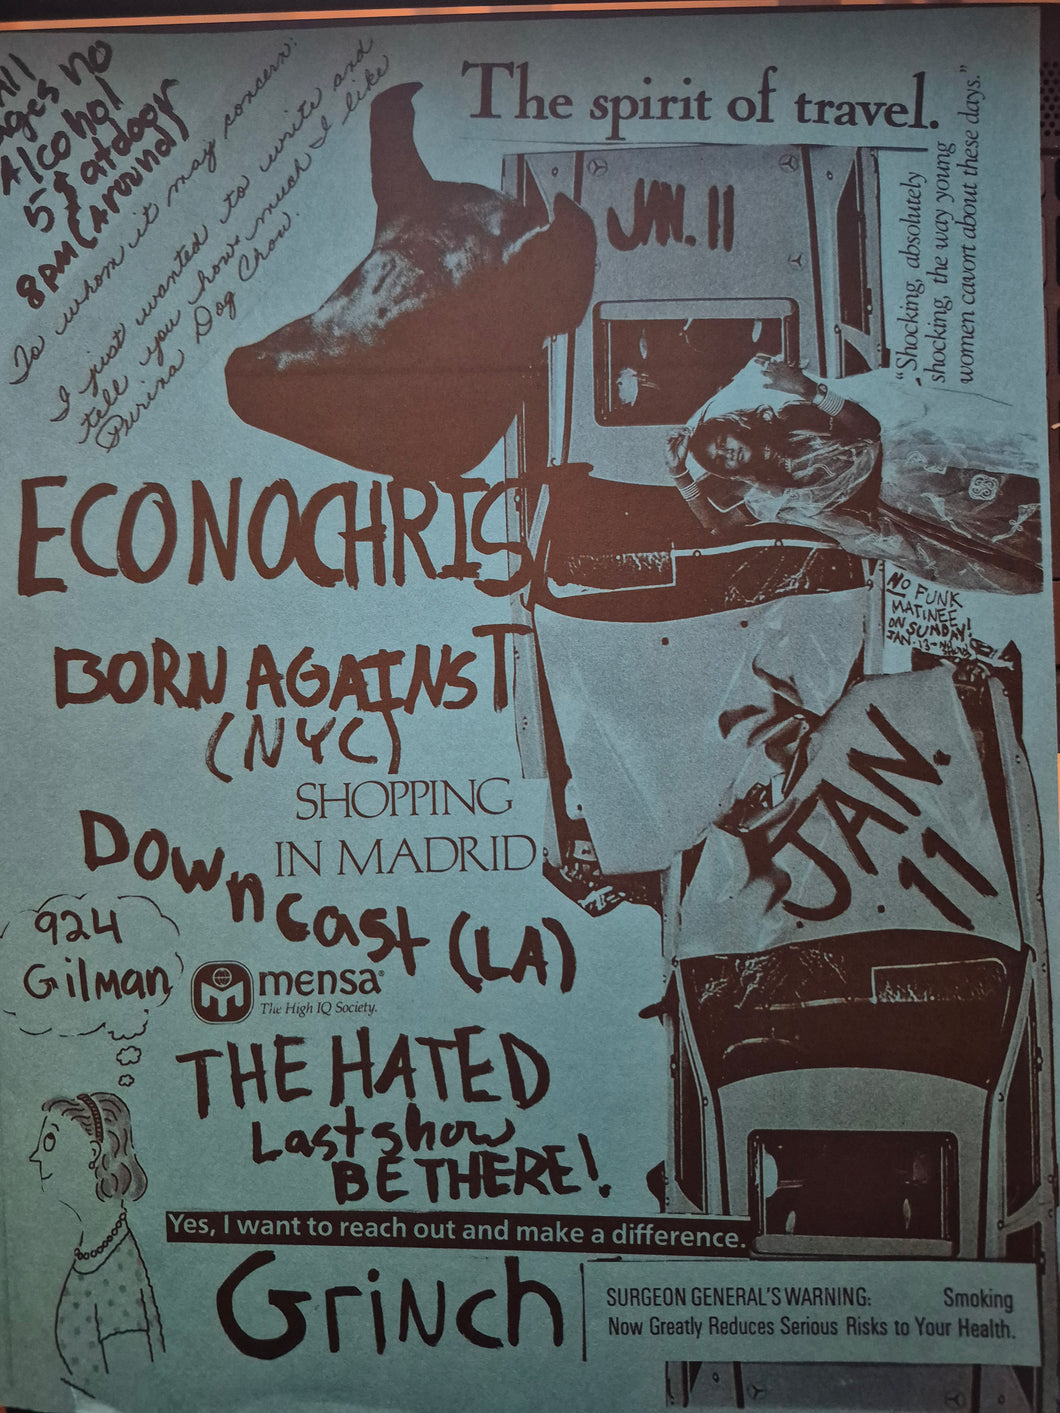 All
ages no
Alcohol
5$ at door
8PM (Around)
To whom it may concern:
I just wanted to write and
tell you how much I like
Purina Dog Chow.
The spirit of travel.
"Shocking, absolutely
shocking, the way young
women cavort about these days."
JAN. 11
ECONOCHRIS
NO FUNK
MATINEE
ON SUNDAY!
JAN. 13-
BORN AGAINST
(NYC)
SHOPPING
IN MADRID
JAN.
11
Downcast (LA)
924
Gilman
mensa®
The High IQ Society.
THE HATED
Last show
BE THERE!
Yes, I want to reach out and make a difference.
GriNch
SURGEON GENERAL'S WARNING: Smoking
Now Greatly Reduces Serious Risks to Your Health.